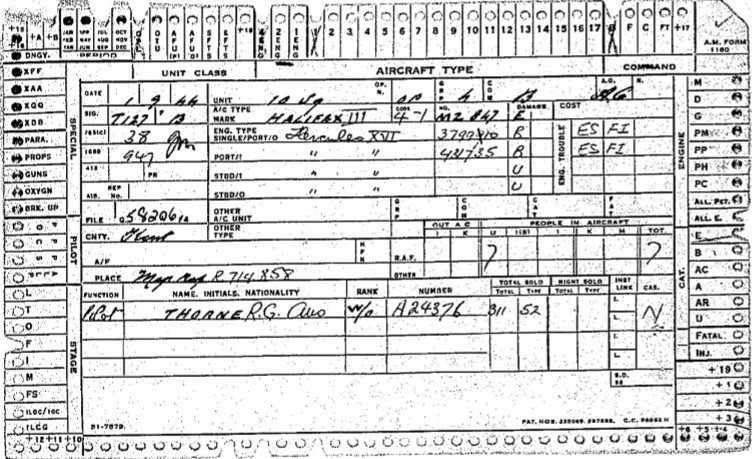 +A +B JAN APR JUL OCT
FEB MAY AUG NOV
MAR JUN SEP DEC
OTU AFU (P) AFU (O) SFTS EFTS +18 4 ENG 2 ENG 1 ENG 1 2 3 4 5 6 7 8 9 10 11 12 13 14 15 16 17 B F C FT +17
PERIOD
A.M. FORM 1180
UNIT CLASS AIRCRAFT TYPE COMMAND
DNGY.
XFF
XAA
XQQ
XDB
PARA.
PROPS
GUNS
OXYGN
BRK. UN
SPECIAL
PILOT
STAGE
L
T
O
F
I
M
FS
ILOC/IOC
ILCG
+12 +11 +10
DATE 1 9 44 UNIT 10 Sq OP. N. GRP 4 COM B A.O. N.
SIG. T127 B A/C TYPE MARK HALIFAX III CODE 4-1 NO. MZ 847 DAMAGE E COST
765(C) 38 ENG. TYPE SINGLE/PORT/O Hercules XVI R ENG. TROUBLE ES FI
1688 947 PORT/I " " 431735 R ES FI
412 PR STBD/I " " U
AIB. REP No. STBD/O U
FILE OTHER A/C UNIT GRP COM CAT FAT
CNTY. OTHER TYPE OUT A C PEOPLE IN AIRCRAFT
I K U I(B) I K M TOT.
A/F HFK R.A.F. ? ?
PLACE Map Ref R 714858 OTHER
FUNCTION NAME. INITIALS. NATIONALITY RANK NUMBER TOTAL SOLO NIGHT SOLO INST LINK CAS.
TOTAL TYPE TOTAL TYPE
Pilot THORNE R.G. Aus W/O A24376 811 52 I. N
L.
I.
L.
S.D. 96
ENGINE
CAT.
M
D
G
PM
PP
PH
PC
ALL PCT.
ALL E.
E
B
AC
A
AR
U
FATAL
INJ.
+19
+1
+2
+3
+6 +5 +4
51-7879. PAT. NOS.